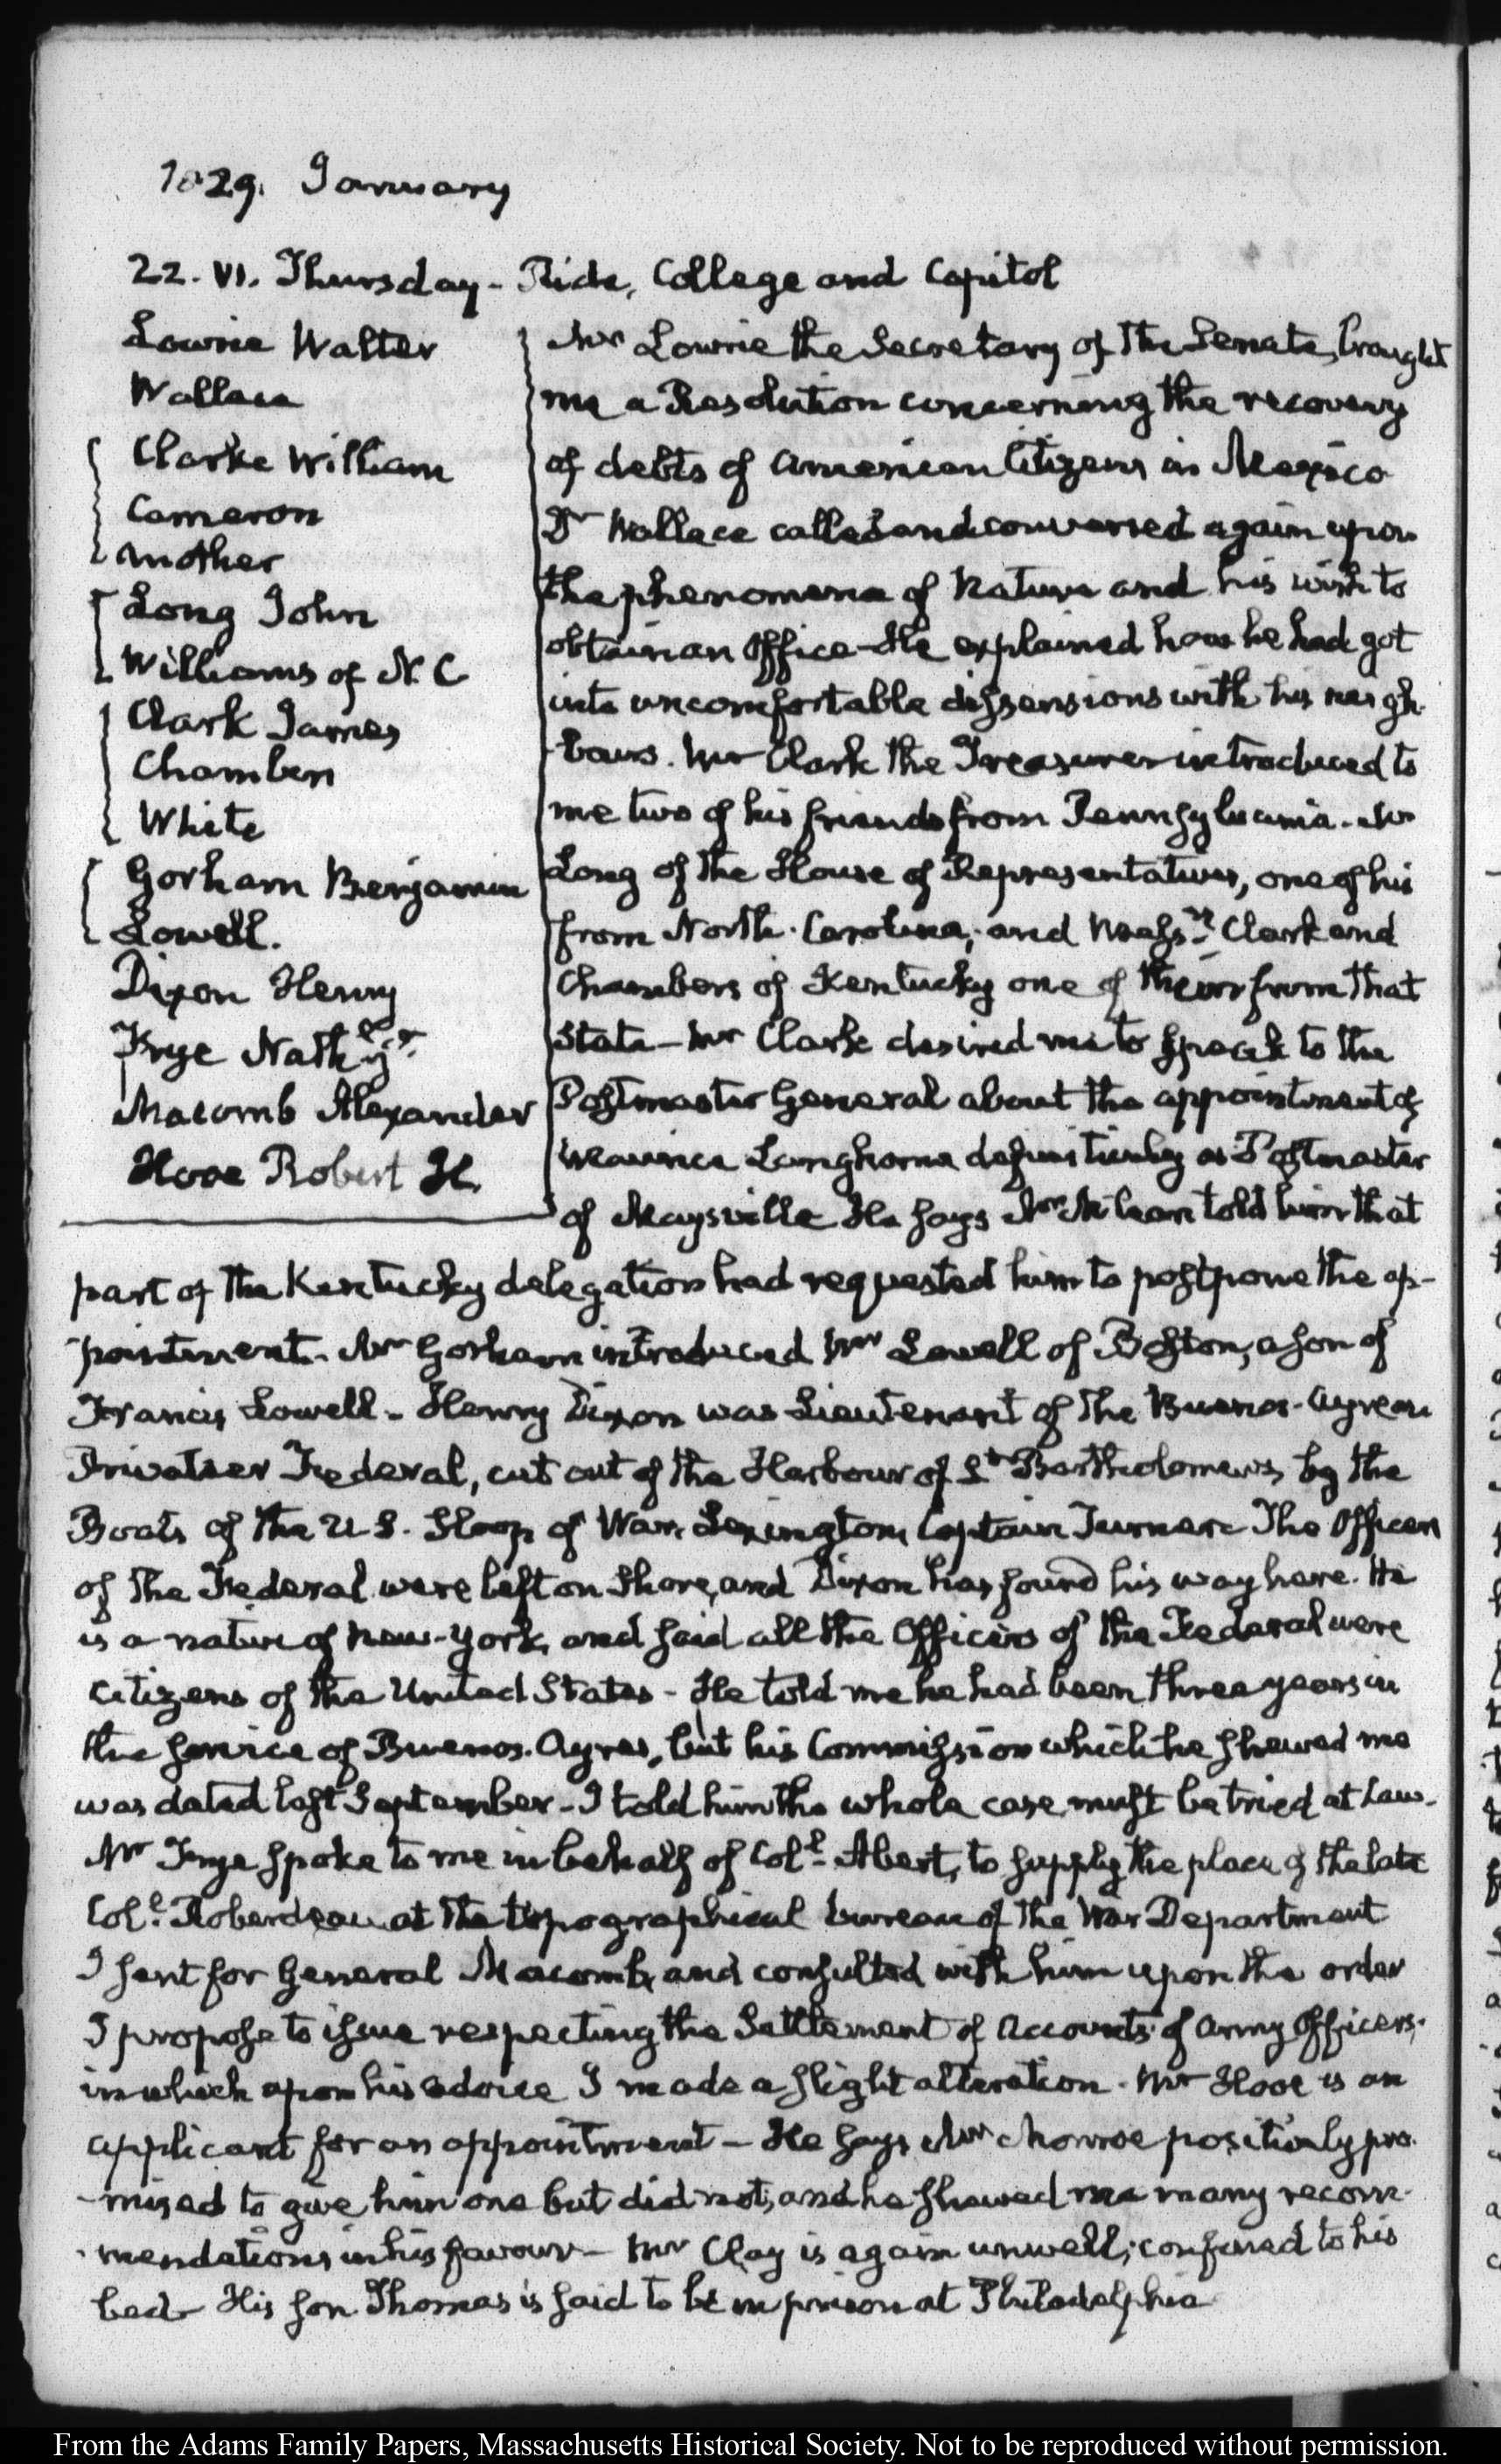 1829. January
22. VI. Thursday - Ride, College and Capitol
Lowrie Walter
Wallace
Clarke William
Cameron
another
Long John
Williams of N. C
Clark James
Chambers
White
Gorham Benjamin
Lowell.
Dixon Henry
Frye Nath.
Macomb Alexander
Hooe Robert H.
Mr Lowrie the Secretary of the Senate, brought
me a Resolution concerning the recovery
of debts of American Citizens in Mexico
Dr Wallace called and conversed again upon
the phenomena of Nature and his wish to
obtain an Office - He explained how he had got
into uncomfortable dissensions with his neigh-
bours. Mr Clark the Treasurer introduced to
me two of his friends from Pennsylvania. Mr
Long of the House of Representatives, one of his
from North-Carolina, and Messrs Clark and
Chambers of Kentucky one of theirs from that
State - Mr Clark desired me to speak to the
Postmaster General about the appointment of
Langhorne definitively as Postmaster
of Maysville He says Mr McLean told him that
part of the Kentucky delegation had requested him to postpone the ap-
-pointment. Mr Gorham introduced Mr Lowell of Boston, a son of
Francis Lowell - Henry Dixon was Lieutenant of the Buenos-Ayrean
Privateer Federal, cut out of the Harbour of St Bartholomews, by the
Boats of the U.S. Sloop of War, Lexington, Captain Turner. The Officers
of the Federal were left on shore, and Dixon has found his way here. He
is a native of New-York, and said all the Officers of the Federal were
Citizens of the United States - He told me he had been three years in
the service of Buenos-Ayres, but his Commission which he shewed me
was dated last September - I told him the whole case must be tried at Law.
Mr Frye spoke to me in behalf of Coll. Abert, to supply the place of the late
Coll. Roberdeau at the topographical bureau of the War Department
I sent for General Macomb, and consulted with him upon the order
I propose to issue respecting the Settlement of Accounts of Army Officers.
in which upon his advice I made a slight alteration. Mr Hooe is an
applicant for an appointment - He says Mr Monroe positively pro-
-mised to give him one but did not, and he shewed me many recom-
-mendations in his favour - Mr Clay is again unwell; confined to his
bed - His son Thomas is said to be in prison at Philadelphia
From the Adams Family Papers, Massachusetts Historical Society. Not to be reproduced without permission.